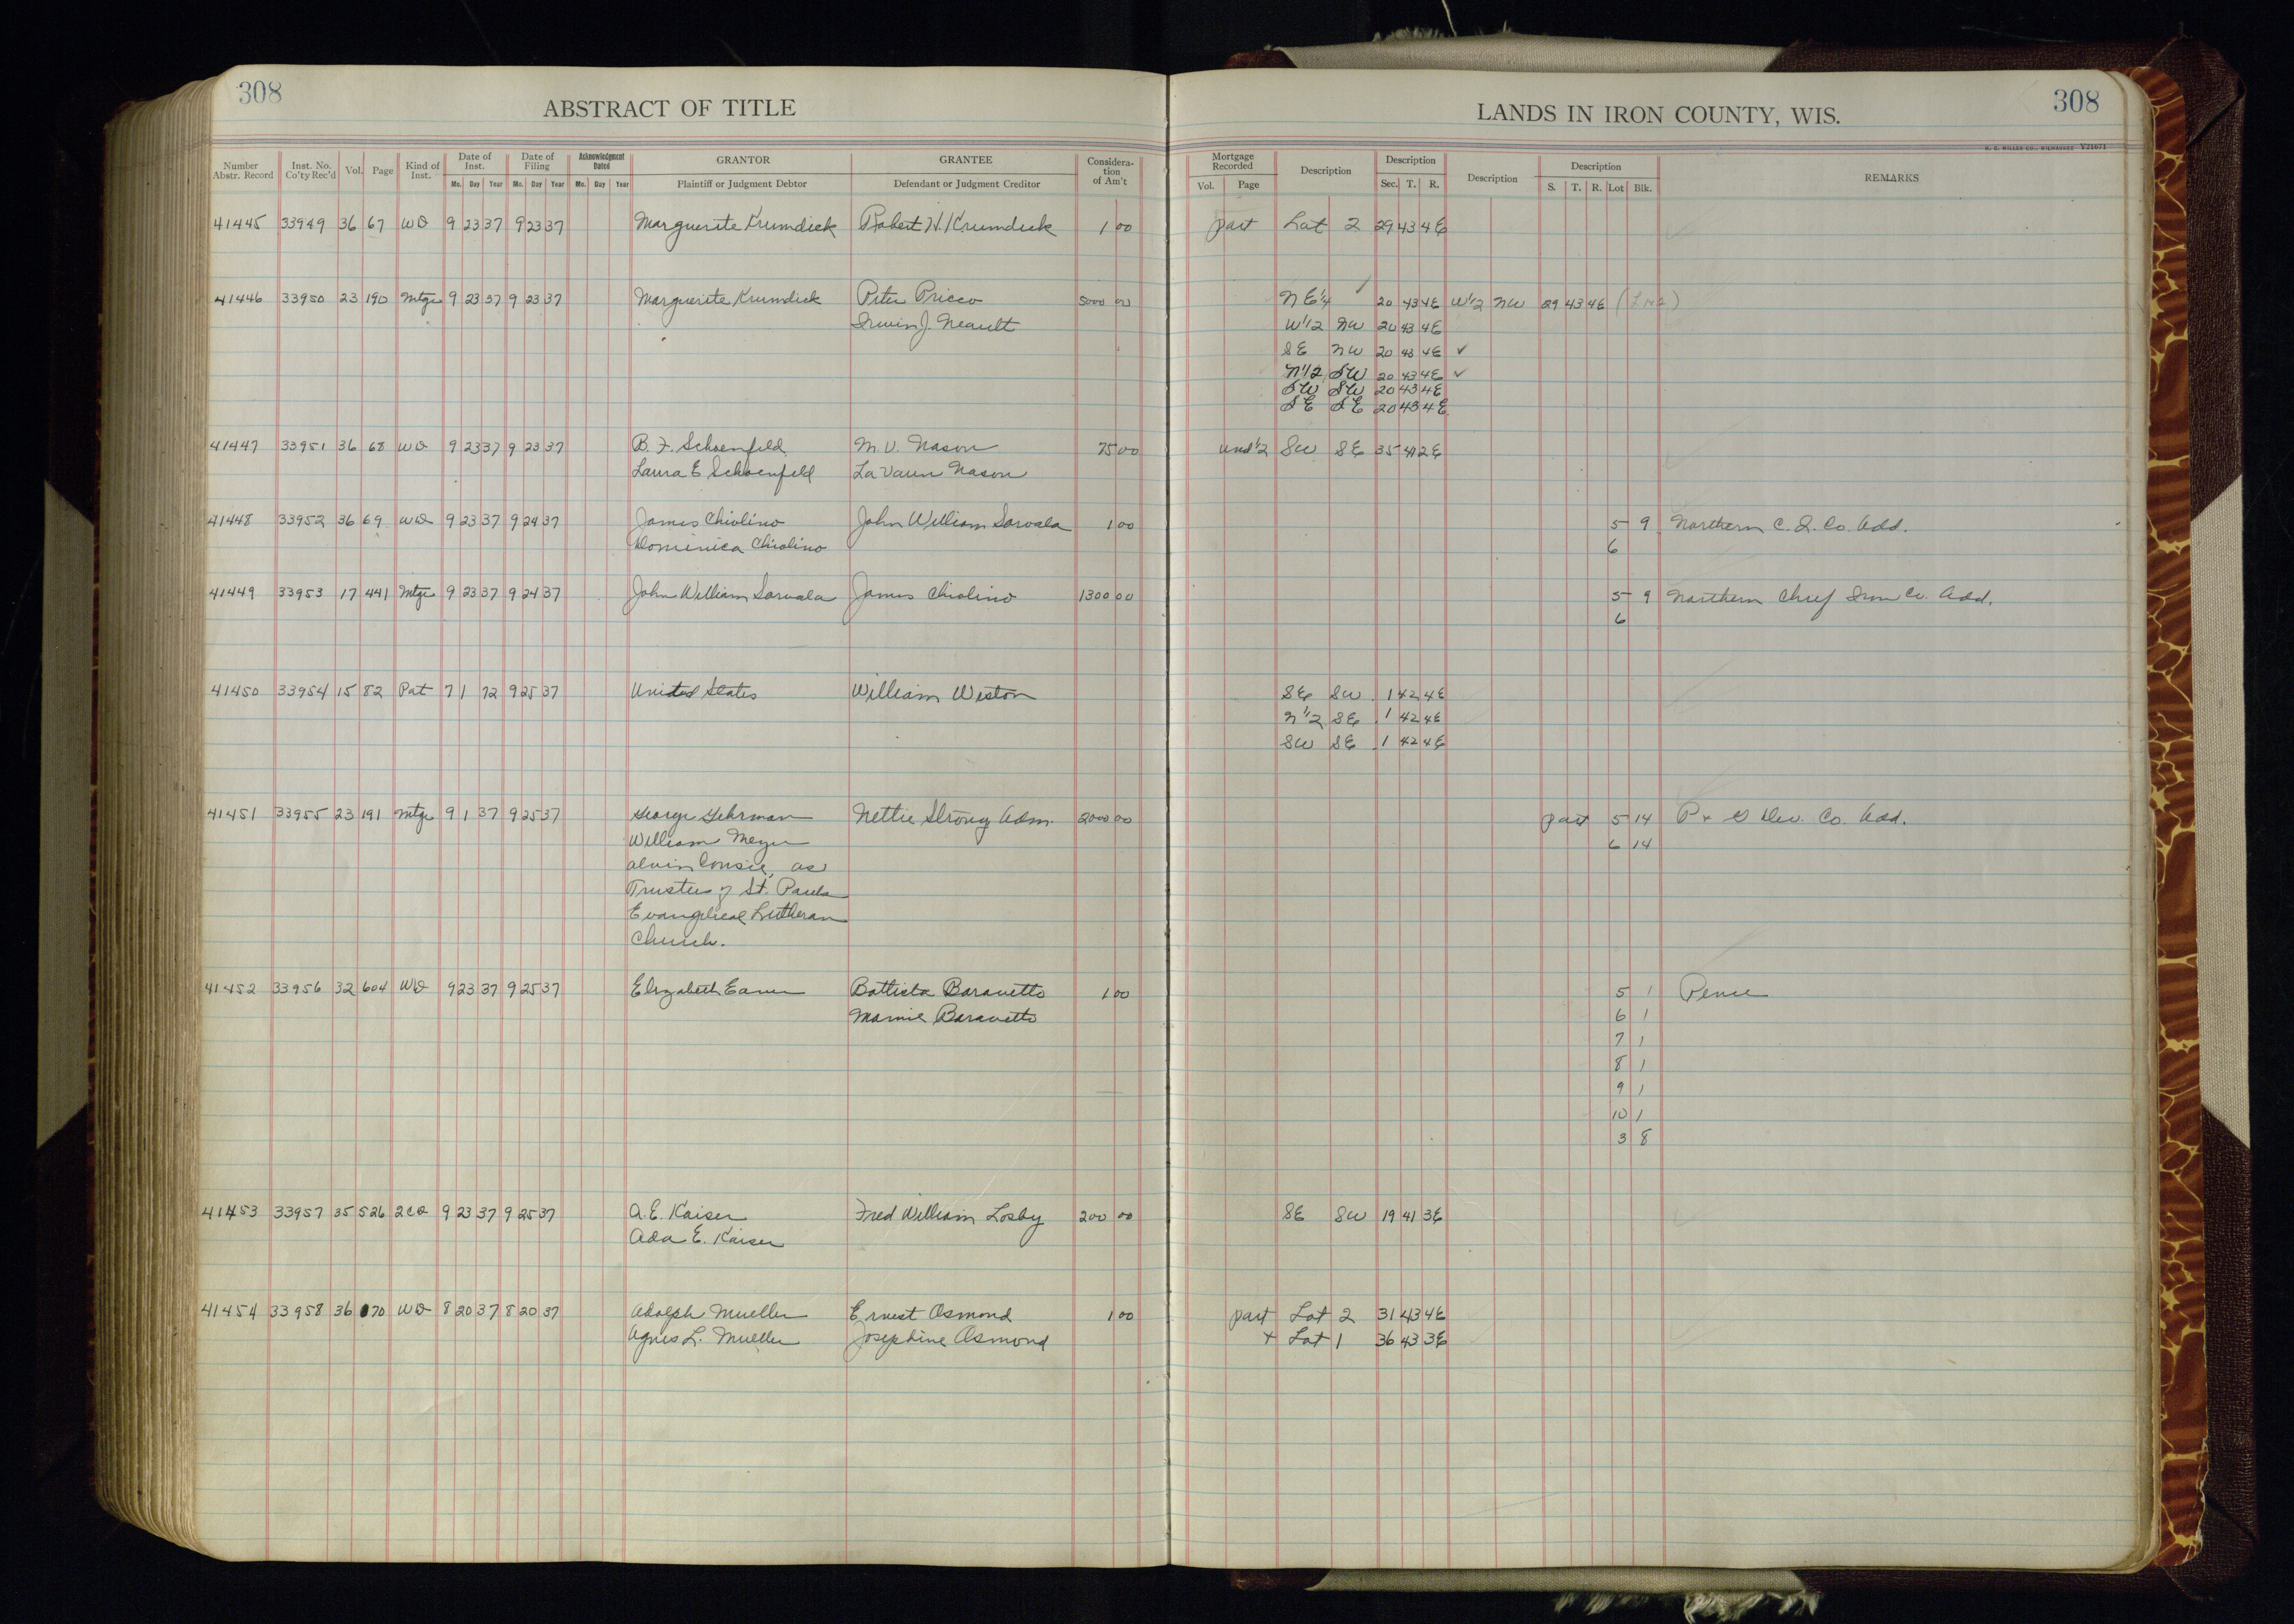 308
ABSTRACT OF TITLE
LANDS IN IRON COUNTY, WIS.
308
H. C. MILLER CO., MILWAUKEE Y21671
Number Abstr. Record Inst. No. Co'ty Rec'd Vol. Page Kind of Inst. Date of Inst. Mc. Day Year Date of Filing Mc. Day Year Acknowledgment Dated Mc. Day Year GRANTOR Plaintiff or Judgment Debtor GRANTEE Defendant or Judgment Creditor Considera-tion of Am't Mortgage Recorded Vol. Page Description Description Sec. T. R. Description Description S. T. R. Lot Blk. REMARKS
41445 33949 36 67 WD 9 23 37 9 23 37 Marguerite Krumdick Robert H. Krumdick 1 00 part Lot 2 29 43 4E
41446 33950 23 190 Mtge 9 23 37 9 23 37 Marguerite Krumdick Peter Pricco 5000 00 NE 1/4 20 43 4E W 1/2 NW 29 43 4E
Irwin J. Neault W 1/2 NW 20 43 4E
SE NW 20 43 4E ✓
N 1/2 SW 20 43 4E ✓
SW SW 20 43 4E
SE SE 20 43 4E
41447 33951 36 68 WD 9 23 37 9 23 37 B. F. Schoenfeld M. V. Nason 75 00 und 1/2 SW SE 35 41 2E
Laura E Schoenfeld La Vaun Nason
41448 33952 36 69 WD 9 23 37 9 24 37 James Chiolino John William Sarvala 1 00 5 9 Northern C. I. Co. Add.
Dominica Chiolino 6
41449 33953 17 441 Mtge 9 23 37 9 24 37 John William Sarvala James Chiolino 1300 00 5 9 Northern Chief Iron Co. Add.
6
41450 33954 15 82 Pat 7 1 72 9 25 37 United States William Weston SE SW 1 42 4E
N 1/2 SE 1 42 4E
SW SE 1 42 4E
41451 33955 23 191 Mtge 9 1 37 9 25 37 George Gehrman Nettie Strong Adm. 2000 00 part 5 14 P + G Dev. Co. Add.
William Meyer 6 14
Alvin as
Trustees of St. Pauls
Evangelical Lutheran
Church.
41452 33956 32 604 WD 9 23 37 9 25 37 Elizabeth Battista Baravetto 1 00 5 1 Pence
Mamie Baravetto 6 1
7 1
8 1
9 1
10 1
3 8
41453 33957 35 526 2CD 9 23 37 9 25 37 A. E. Kaiser Fred William Losby 200 00 SE SW 19 41 3E
Ada E. Kaiser
41454 33958 36 70 WD 8 20 37 8 20 37 Adolph Mueller Ernest Osmond 1 00 part Lot 2 31 43 4E
Agnes L. Mueller Josephine Osmond + Lot 1 36 43 3E